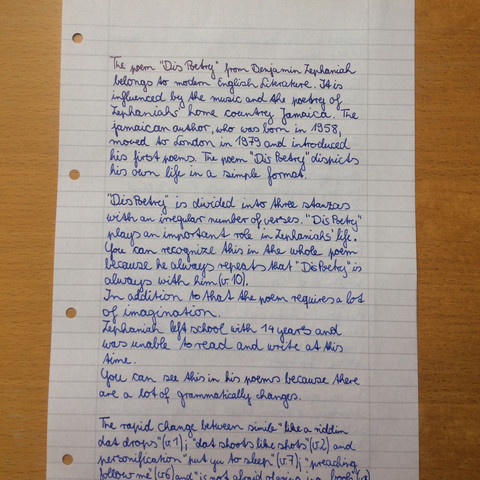 The poem "Dis Poetry" from Benjamin Zephaniah
belongs to modern English Literature. It is
influenced by the music and the poetry of
Zephaniahs' home country Jamaica. The
jamaican author, who was born in 1958,
moved to London in 1979 and introduced
his first poems. The poem "Dis Poetry" dispicts
his own life in a simple format.
"Dis Poetry" is divided into three stanzas
with an irregular number of verses. "Dis Poetry"
plays an important role in Zephaniahs' life.
You can recognize this in the whole poem
because he always repeats that "Dis Poetry" is
always with him (v.10).
In addition to that the poem requires a lot
of imagination.
Zephaniah left school with 14 years and
was unable to read and write at this
time.
You can see this in his poems because there
are a lot of grammatically changes.
The rapid change between simile "like a riddin
dat drops" (v.1); "dat shoots like shots" (v.2) and
personification "put yu to sleep" (v.7); "preaching
follow me" (v.6) and "is not afraid of going in a book"